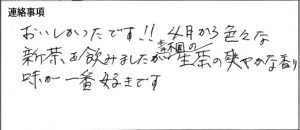 連絡事項
おいしかったです!! 4月から色々な
新茶を飲みましたが、本園の生茶の爽やかな香り
味が一番好きです